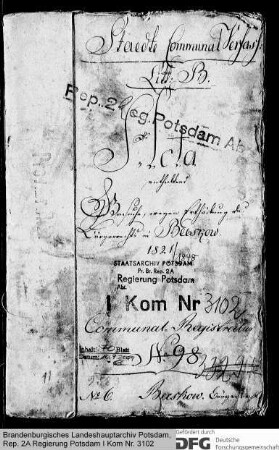 Staedte Communal Verfass.
Litt. B.
Rep. 2 Reg. Potsdam Ab
Acta
enthaltend
wegen Ertheilung des
Bürgerrechts in Beeskow.
1821
STAATSARCHIV POTSDAM
Pr. Br. Rep. 2A
Regierung Potsdam
Abt.
I Kom Nr 3102
Communal Registratur
Inhalt: Blatt
No 98
No 6 Beeskow.
Brandenburgisches Landeshauptarchiv Potsdam,
Rep. 2A Regierung Potsdam I Kom Nr. 3102
Gefördert durch
DFG Deutsche
Forschungsgemeinschaft